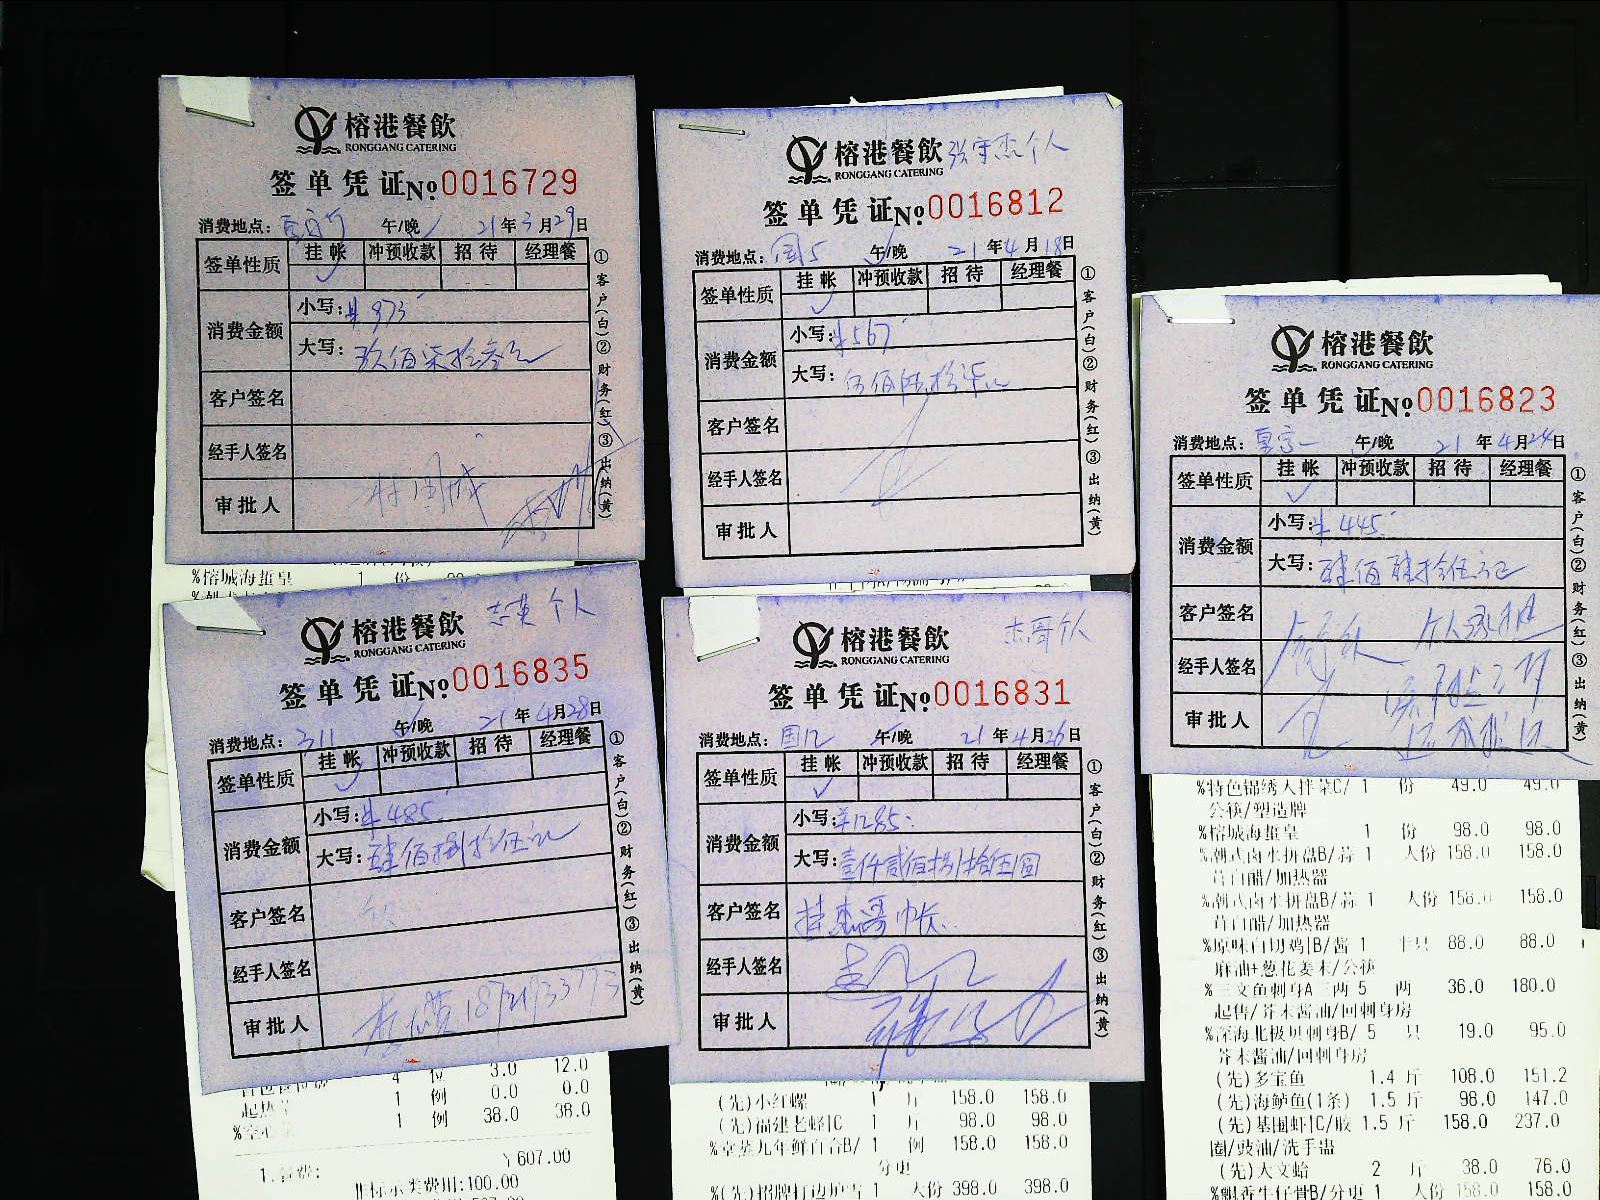 榕港餐飲
RONGGANG CATERING
签单凭证 №0016729
消费地点: 午/晚 21年3月29日
签单性质 挂帐 冲预收款 招待 经理餐
消费金额 小写: ¥973
大写: 玖佰柒拾叁元
客户签名
经手人签名
审批人
①客户(白)②财务(红)③出纳(黄)
榕港餐飲
RONGGANG CATERING
个人
签单凭证 №0016812
消费地点: 国5 午/晚 21年4月18日
签单性质 挂帐 冲预收款 招待 经理餐
消费金额 小写: ¥567
大写: 伍佰陆拾柒元
客户签名
经手人签名
审批人
①客户(白)②财务(红)③出纳(黄)
榕港餐飲
RONGGANG CATERING
签单凭证 №0016823
消费地点: 午/晚 21年4月24日
签单性质 挂帐 冲预收款 招待 经理餐
消费金额 小写: ¥445
大写: 肆佰肆拾伍元
客户签名
经手人签名
审批人
①客户(白)②财务(红)③出纳(黄)
%榕城海蜇皇 1 份
榕港餐飲
RONGGANG CATERING
个人
签单凭证 №0016835
消费地点: 311 午/晚 21年4月28日
签单性质 挂帐 冲预收款 招待 经理餐
消费金额 小写: ¥485
大写: 肆佰捌拾伍元
客户签名
经手人签名
审批人
①客户(白)②财务(红)③出纳(黄)
榕港餐飲
RONGGANG CATERING
杰哥个人
签单凭证 №0016831
消费地点: 国12 午/晚 21年4月26日
签单性质 挂帐 冲预收款 招待 经理餐
消费金额 小写: ¥1285
大写: 壹仟贰佰捌拾伍圆
客户签名 挂杰哥帐
经手人签名
审批人
①客户(白)②财务(红)③出纳(黄)
4 位 3.0 12.0
起热 1 例 0.0 0.0
1 例 38.0 38.0
¥607.00
非标示类费用:100.00
(先)小红螺 1 斤 158.0 158.0
(先)福建老蛏|C 1 斤 98.0 98.0
%堂蒸九年鲜百合B/ 1 例 158.0 158.0
分更
1 大份 398.0 398.0
%特色锦绣大拌菜C/ 1 份 49.0 49.0
公筷/塑造牌
%榕城海蜇皇 1 份 98.0 98.0
%潮式卤水拼盘B/蒜 1 大份 158.0 158.0
茸白醋/加热器
%潮式卤水拼盘B/蒜 1 大份 158.0 158.0
茸白醋/加热器
%原味白切鸡|B/酱 1 半只 88.0 88.0
麻油+葱花姜末/公筷
%三文鱼刺身A三两 5 两 36.0 180.0
起售/芥末酱油/回刺身房
%深海北极贝刺身B/ 5 只 19.0 95.0
芥末酱油/回刺身房
(先)多宝鱼 1.4 斤 108.0 151.2
(先)海鲈鱼(1条) 1.5 斤 98.0 147.0
(先)基围虾|C/胶 1.5 斤 158.0 237.0
圈/豉油/洗手盅
(先)大文蛤 2 斤 38.0 76.0
1 大份 158.0 158.0